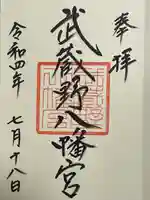 奉拝
武蔵野八幡宮
令和四年 七月十八日